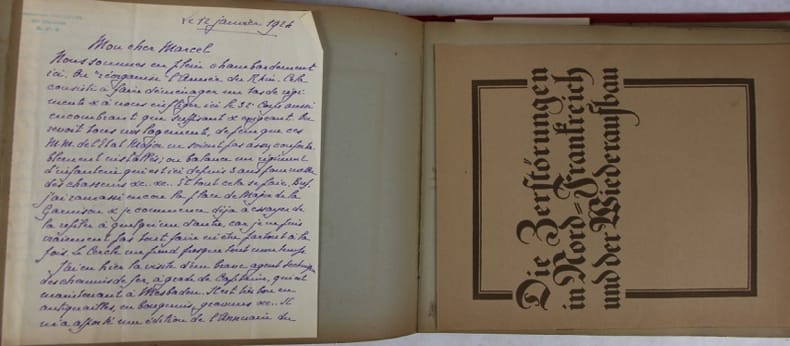 le 12 janvier 1924
Mon cher Marcel
Nous sommes en plein chambardement
ici. On "réorganise" l'Armée du Rhin. Cela
consiste à faire déménager un tas de régi-
ments & à nous infliger ici le 32e Corps aussi
encombrant que suffisant & exigeant. On
revoit tous nos logements, de peur que ces
M.M. de l'Etat Major ne soient pas assez conforta-
blement installés; on balance un régiment
d'infanterie qui est ici depuis 3 ans pour mettre
des chasseurs &c. &c. Et tout cela se paie. Bref
j'ai ramassé encore la place de Major de la
Garnison & je commence déjà à essayer de
la refiler à quelqu'un d'autre, car je ne puis
vraiment pas tout faire ni être partout à la
fois. Le Cercle me prend presque tout mon temps.
J'ai eu hier la visite d'un brave agent technique
des chemins de fer, à grade de Capitaine, qui est
maintenant à Wiesbaden. Il est très bon en
antiquailles, en bouquins, gravures &c. Il
m'a apporté une édition de l'Annuaire du
Die Zerstörungen
in Nord=Frankreich
und der Wiederaufbau